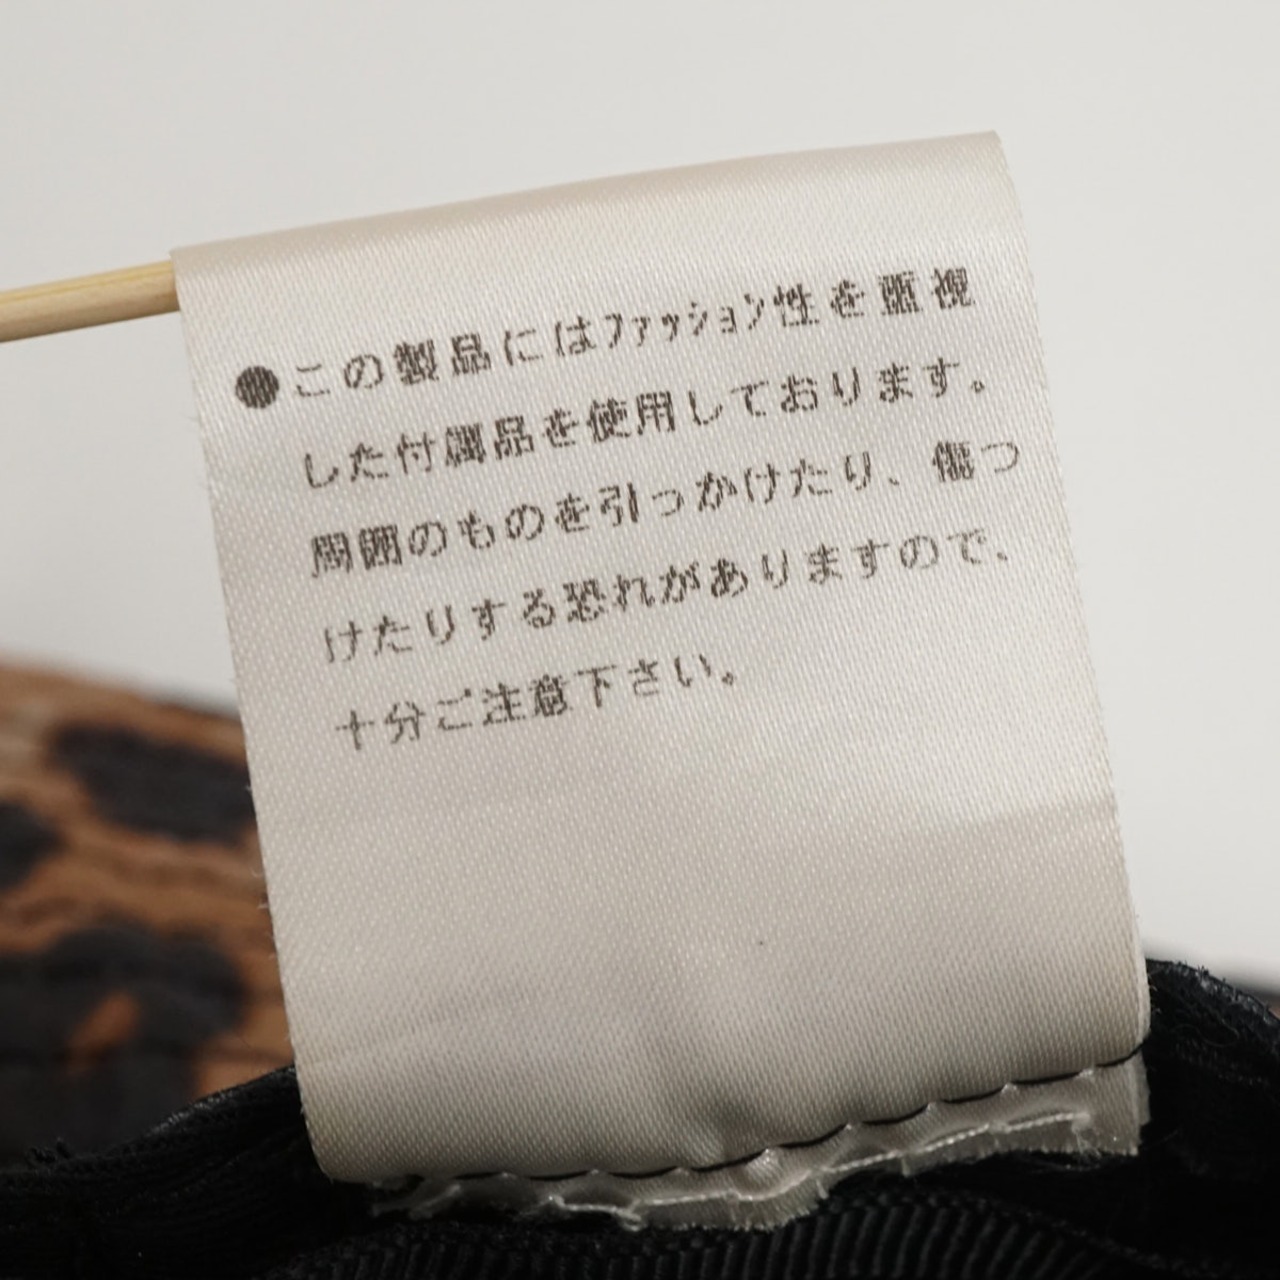 ●この製品にはﾌｧｯｼｮﾝ性を重視
した付属品を使用しております。
周囲のものを引っかけたり、傷つ
けたりする恐れがありますので、
十分ご注意下さい。